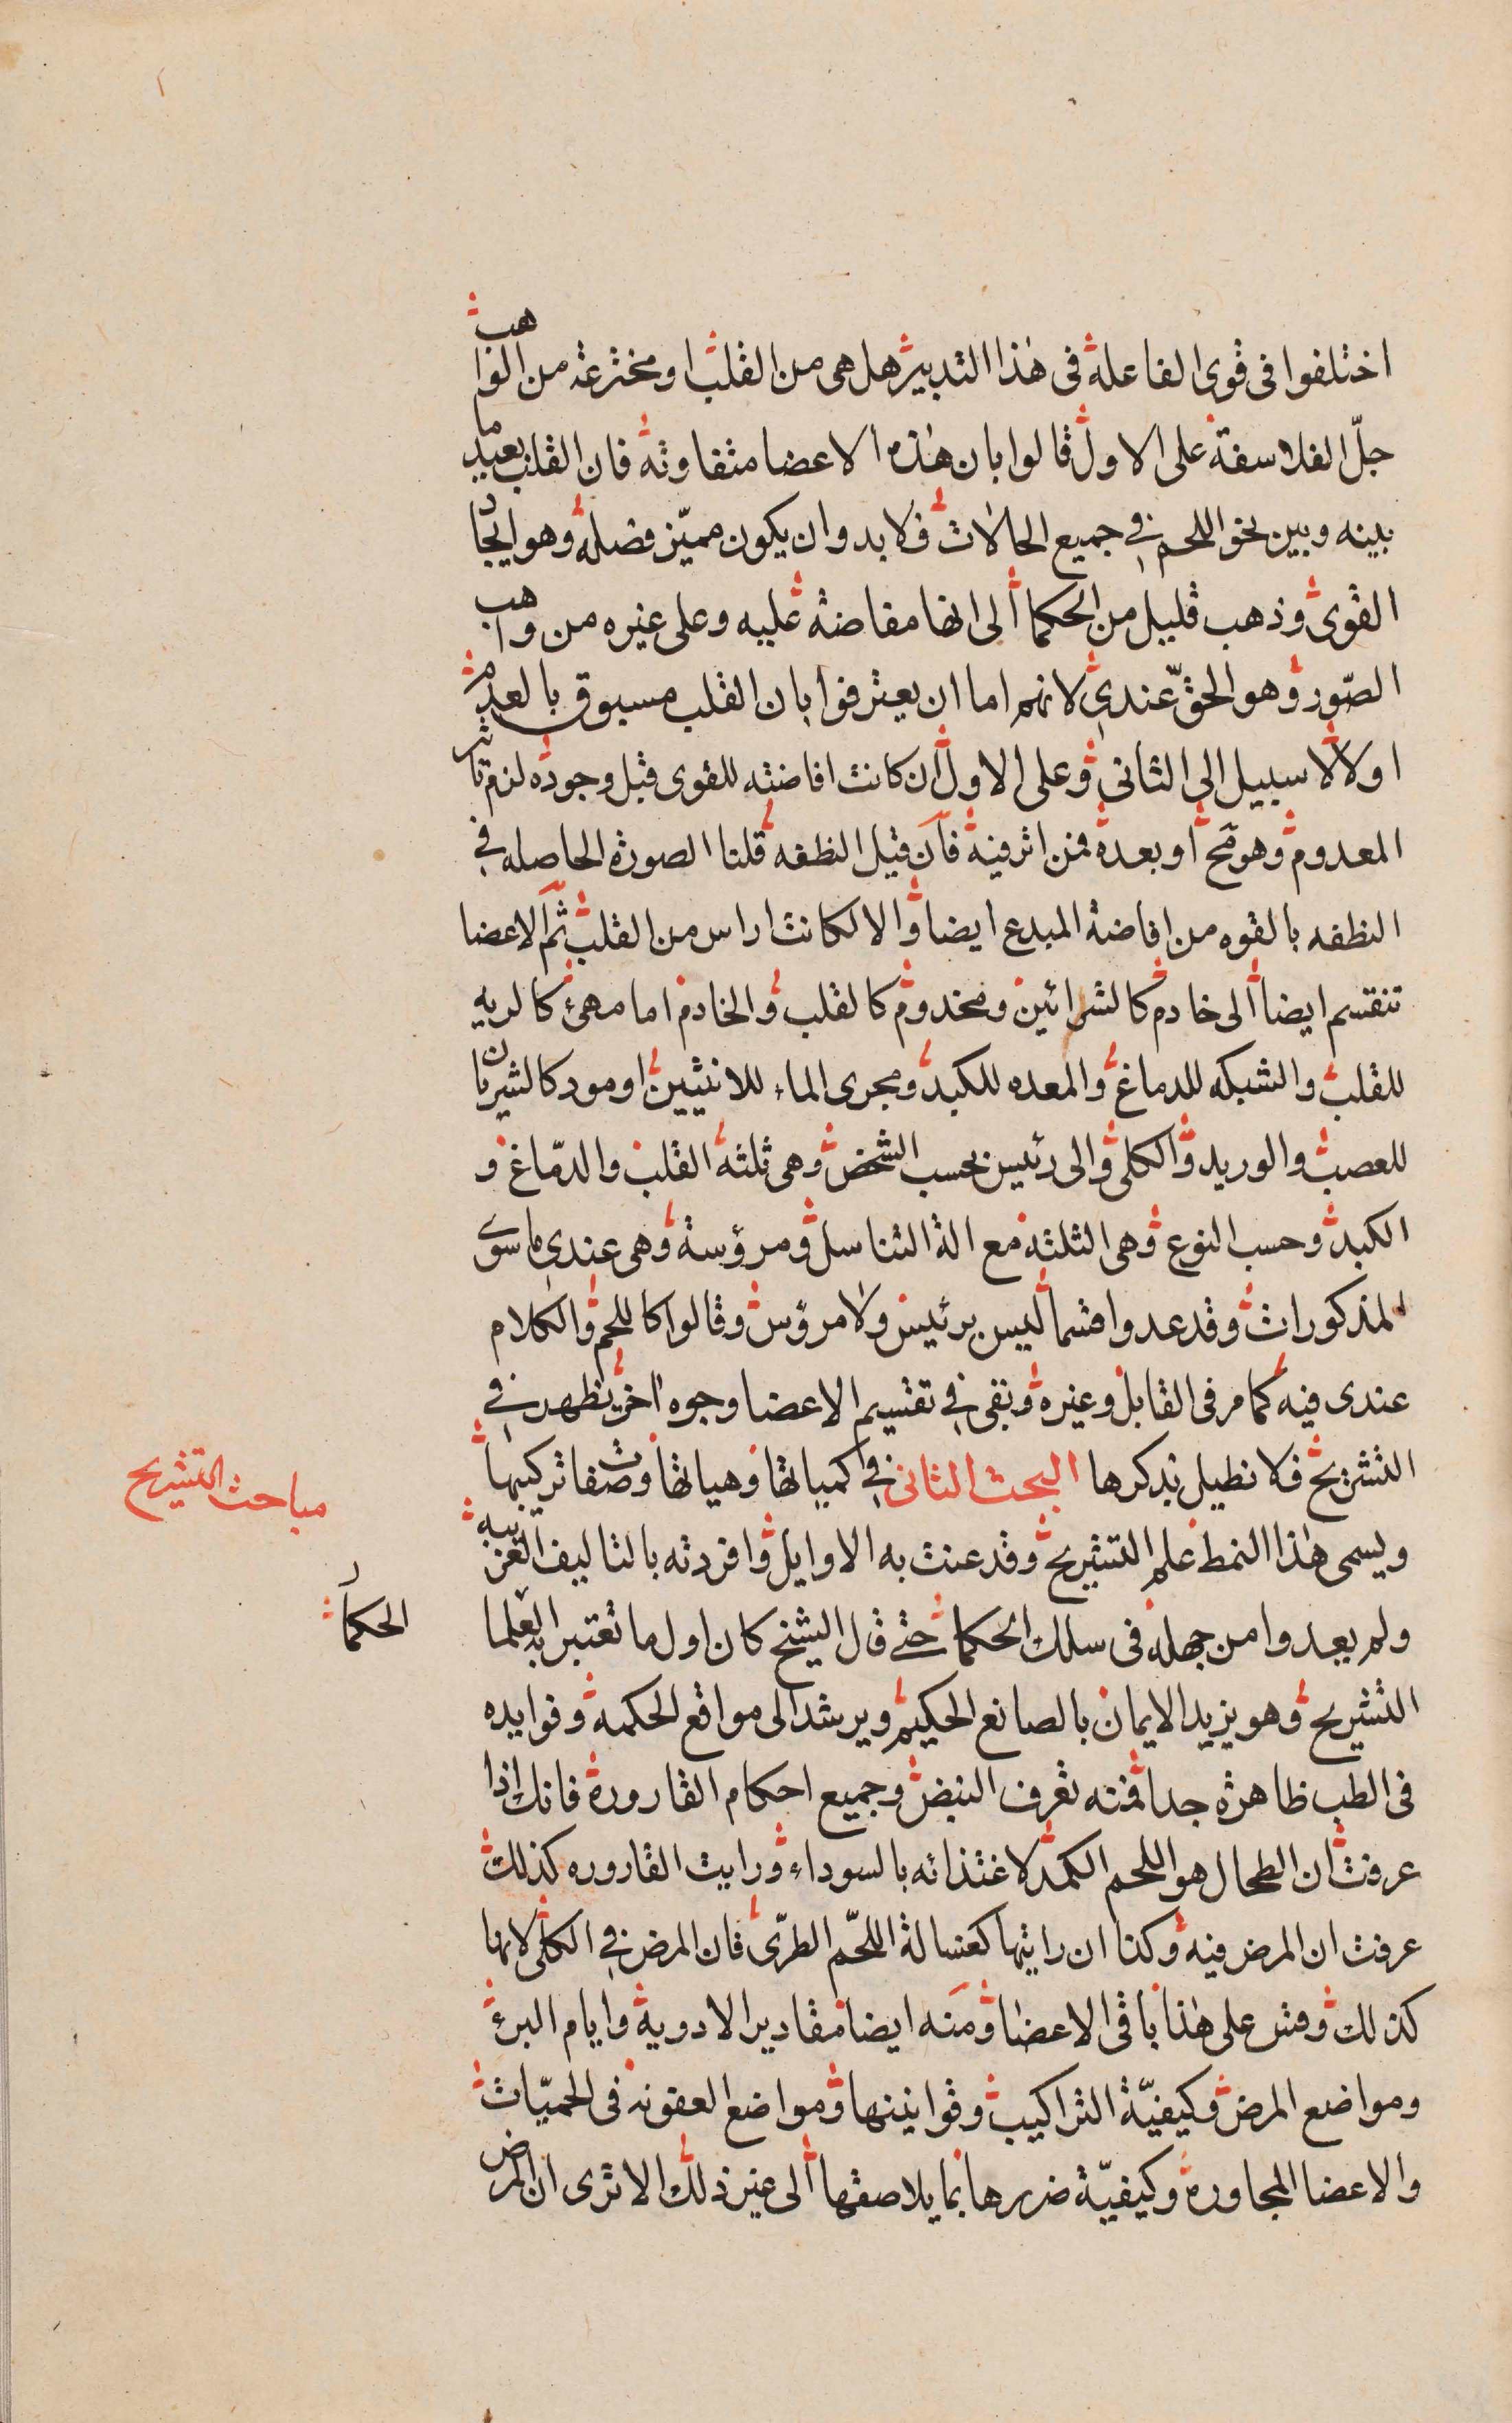 اختلفوا فى قوى الفاعلة فى هذا التدبير هل هى من القلب او مخترعة من الواهب
جلّ الفلاسفة على الاول قالوا بان هذه الاعضا متفاوته فان القلب بعيد ما
بينه وبين نحو اللحم فى جميع الحالات فلا بد وان يكون مميّز فضله وهو ايجاد
القوى وذهب قليل من الحكما الى انها مفاضة عليه وعلى غيره من واهب
الصّور وهو الحقّ عندى لانهم اما ان يعترفوا بان القلب مسبوق بالعدم
اولا لا سبيل الى الثانى وعلى الاول ان كانت افاضته للقوى قبل وجوده لزم تاثير
المعدوم وهو مح او بعده فمن اثر فيه فان قيل النطفه قلنا الصورة الحاصله فى
النطفه بالقوه من افاضة المبدع ايضا والا لكانت اراس من القلب ثم الاعضا
تنقسم ايضا الى خادم كالشرائين ومخدوم كالقلب والخادم اما مهئ كالريه
للقلب والشبكه للدماغ والمعده للكبد ومجرى الماء للانثيين او مود كالشريان
للعصب والوريد والكلى والى رئيس بحسب الشخص وهى ثلثة القلب والدّماغ و
الكبد وحسب النوع وهى الثلثة مع الة التناسل ومرؤسة وهى عندى ما سوى
المذكورات وقد عدوا قسما ليس برئيس ولا مرؤس وقالوا كاللحم والكلام
عندى فيه كما مر فى القابل وغيره وبقى فى تقسيم الاعضا وجوه اخر تظهر فى
التشريح فلا نطيل بذكرها البحث الثانى فى كمياتها وهياتها وصفات تركيبها
مباحث التشريح
ويسمى هذا النمط علم التشريح وقد عنت به الاوايل وافردته بالتاليف الغريبه
ولم يعدوا من جهله فى سلك الحكما حتى قال الشيخ كان اول ما تعتبر به العلما
الحكما
التشريح وهو يزيد الايمان بالصانع الحكيم ويرشد الى مواقع الحكمه وفوايده
فى الطب ظاهرة جدا فمنه تعرف النبض وجميع احكام القارورة فانك اذا
عرفت ان الطحال هو اللحم الكمد لاغتذائه بالسوداء ورايت القاروره كذلك
عرفت ان المرض فيه وكذا ان رايتها كغسالة اللحّم الطرّى فان المرض فى الكلى لانها
كذلك وقس على هذا باقى الاعضا ومنه ايضا مقادير الادوية وايام البرء
ومواضع المرض وكيفيّة التراكيب وقوانينها ومواضع العفونه فى الحميّات
والاعضا المجاوره وكيفيّة ضررها بما يلاصقها الى غير ذلك الا ترى ان المرض